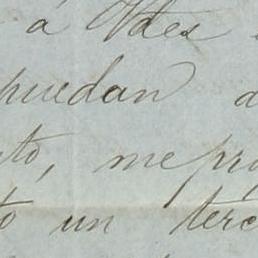 á Vdes
puedan
to, me pro
tó un terc